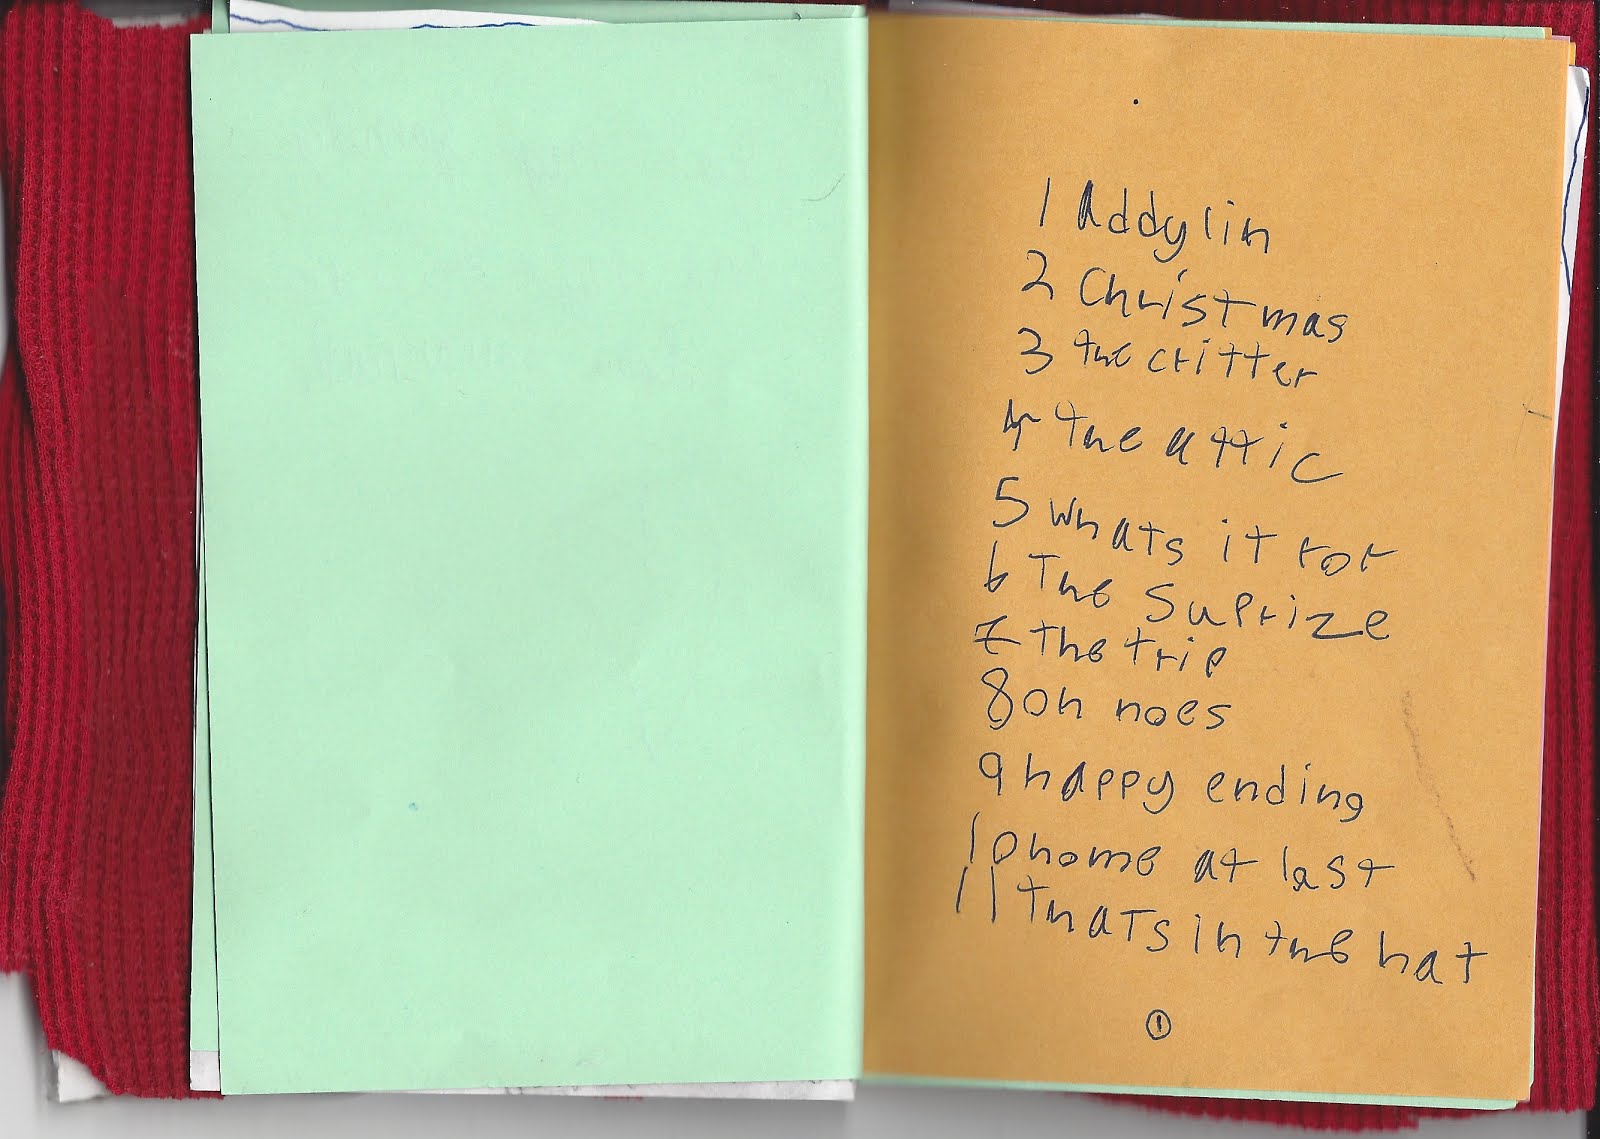 1 Addylin
2 Christmas
3 the critter
4 the attic
5 whats it for
6 The Suprize
7 the trip
8 oh noes
9 happy ending
10 home at last
11 thats in the hat
1